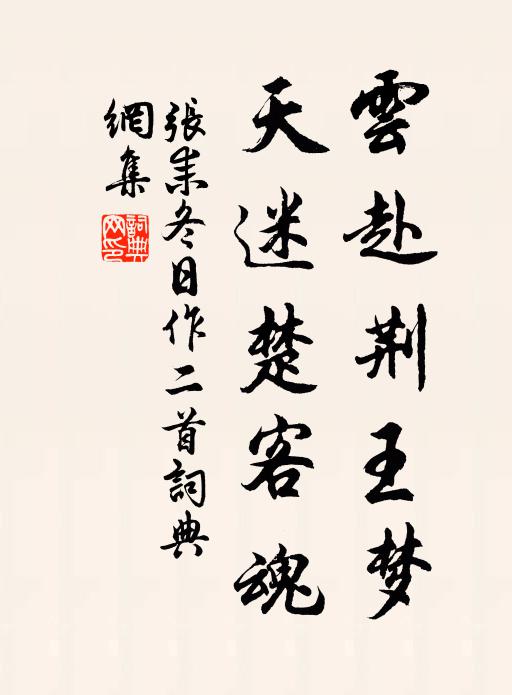 雲赴荆王梦
天迷楚客魂
張耒冬日作二首詞典
網集
詞典
网印